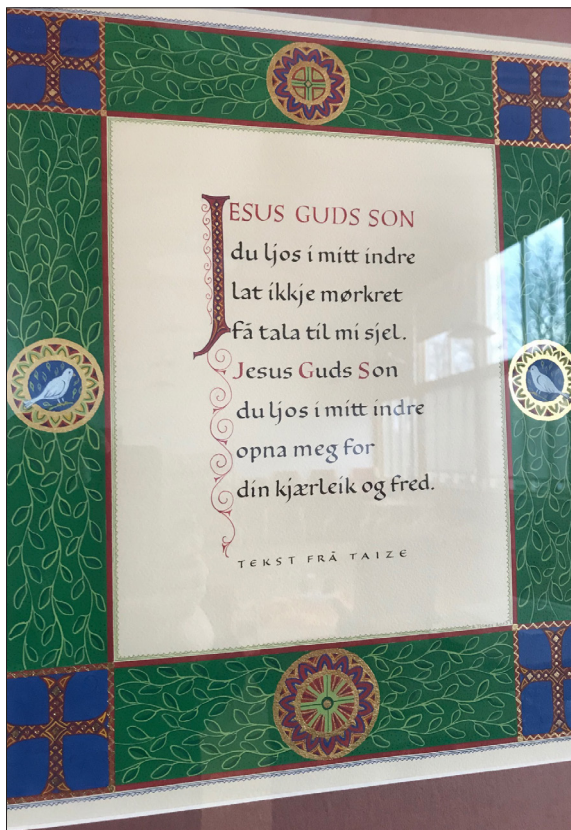 JESUS GUDS SON
du ljos i mitt indre
lat ikkje mørkret
få tala til mi sjel.
Jesus Guds Son
du ljos i mitt indre
opna meg for
din kjærleik og fred.
TEKST FRÅ TAIZE